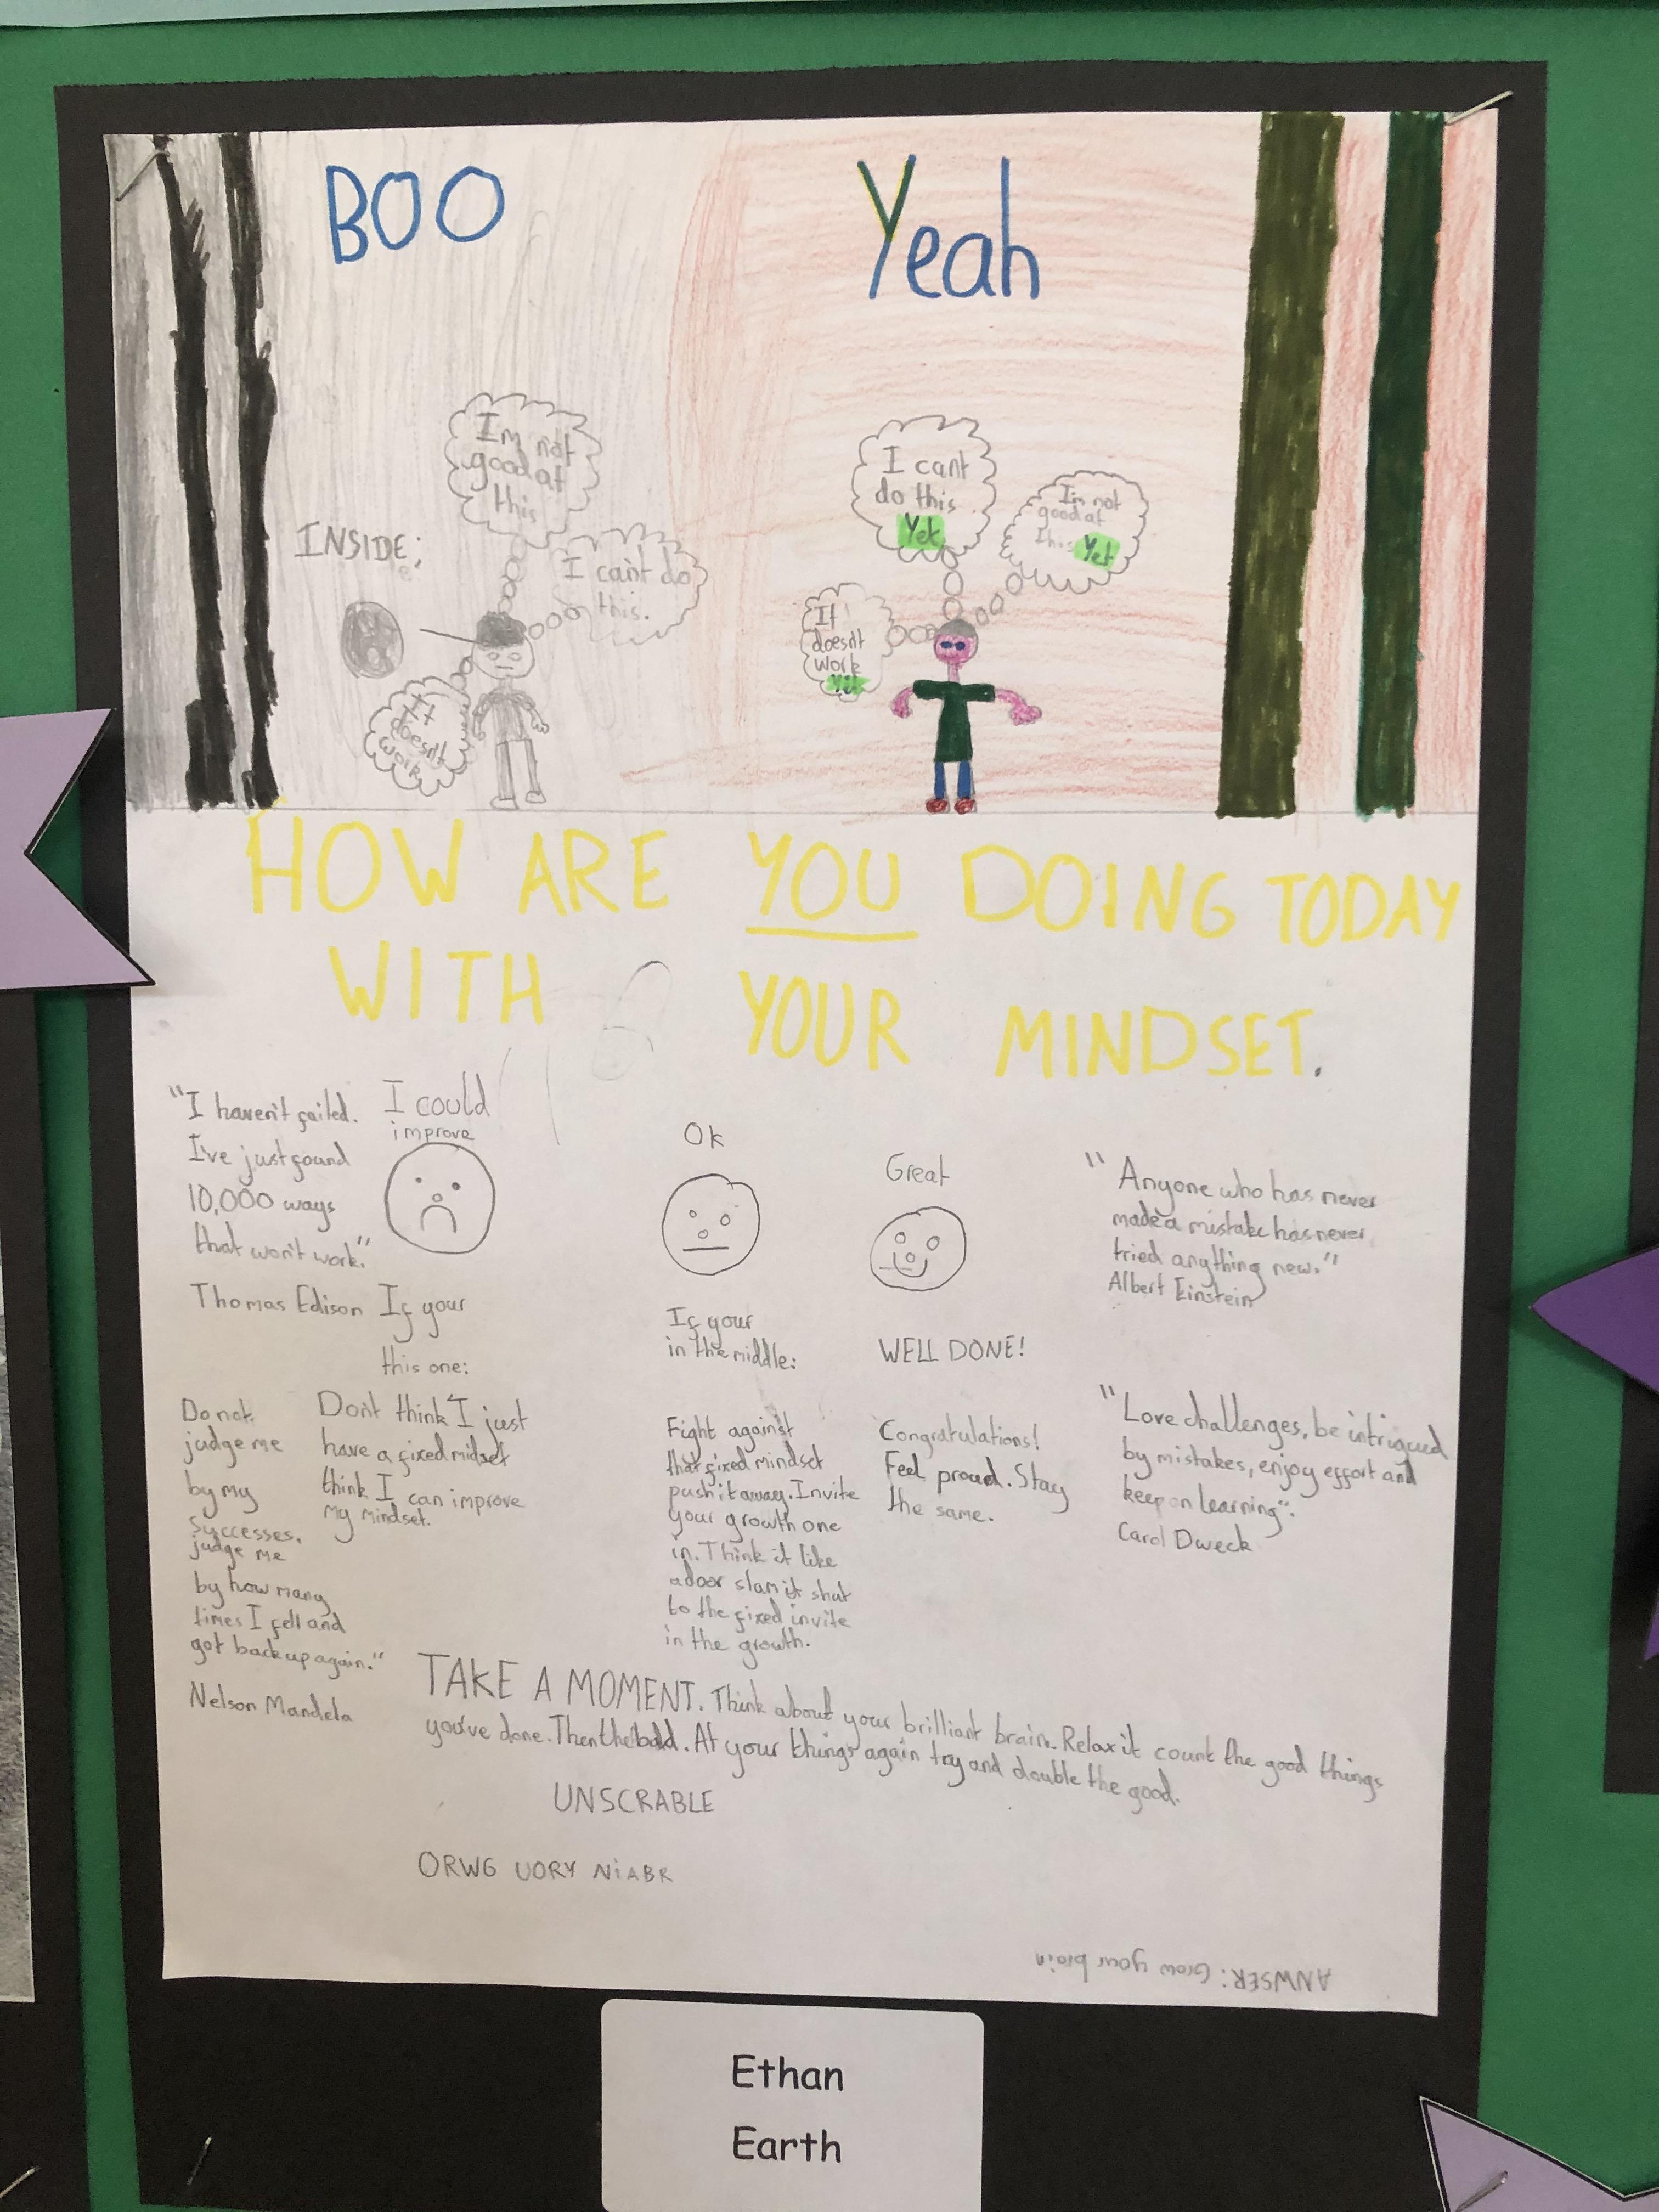 BOO
Yeah
I'm not
good at
this
INSIDE:
I can't do
this.
It
doesn't
work
I cant
do this
Yet
I'm not
good at
this Yet
It
doesn't
work
Yet
HOW ARE YOU DOING TODAY
WITH YOUR MINDSET.
"I haven't failed.
I've just found
10,000 ways
that won't work."
Thomas Edison
I could
improve
If your
this one:
Don't think I just
have a fixed midset
think I can improve
my mindset.
Do not
judge me
by my
successes.
judge me
by how many
times I fell and
got back up again."
Nelson Mandela
Ok
If your
in the middle:
Fight against
that fixed mindset
push it away. Invite
your growth one
in. Think it like
a door slam it shut
to the fixed invite
in the growth.
Great
WELL DONE!
Congratulations!
Feel proud. Stay
the same.
"Anyone who has never
made a mistake has never
tried anything new."
Albert Einstein
"Love challenges, be intrigued
by mistakes, enjoy effort and
keep on learning".
Carol Dweck
TAKE A MOMENT. Think about your brilliant brain. Relax it count the good things
you've done. Then the bad. At your things again try and double the good.
UNSCRABLE
ORWG UORY NIABR
ANWSER: Grow your brain
Ethan
Earth